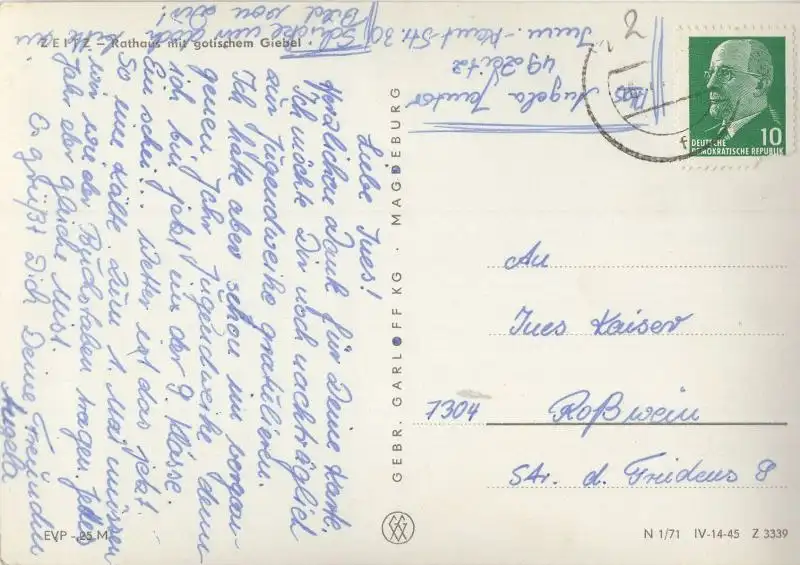 ZEITZ – Rathaus mit gotischem Giebel
Liebe Ines!
Herzlichen Dank für Deine Karte.
Ich möchte Dir noch nachträglich
zur Jugendweihe gratulieren.
Ich hatte aber schon im vergan-
genen Jahr Jugendweihe denn
ich bin jetzt in der 9. Klasse.
Ein schei... Wetter ist das jetzt
So eine Kälte. Zum 1. Mai müssen
wir wieder Buchstaben tragen. Jedes
Jahr der gleiche Mist.
Es grüßt Dich Deine Freundin
Angela
Schicke mir doch bitte ein
Bild von Dir!
Abs. Angela Jantos
49 Zeitz
Imm.-Kant-Str. 30
GEBR. GARLOFF KG · MAGDEBURG
DEUTSCHE
DEMOKRATISCHE REPUBLIK
10
An
Ines Kaiser
7304 Roßwein
Str. d. Fridens 8
EVP -,25 M
N 1/71 IV-14-45 Z 3339